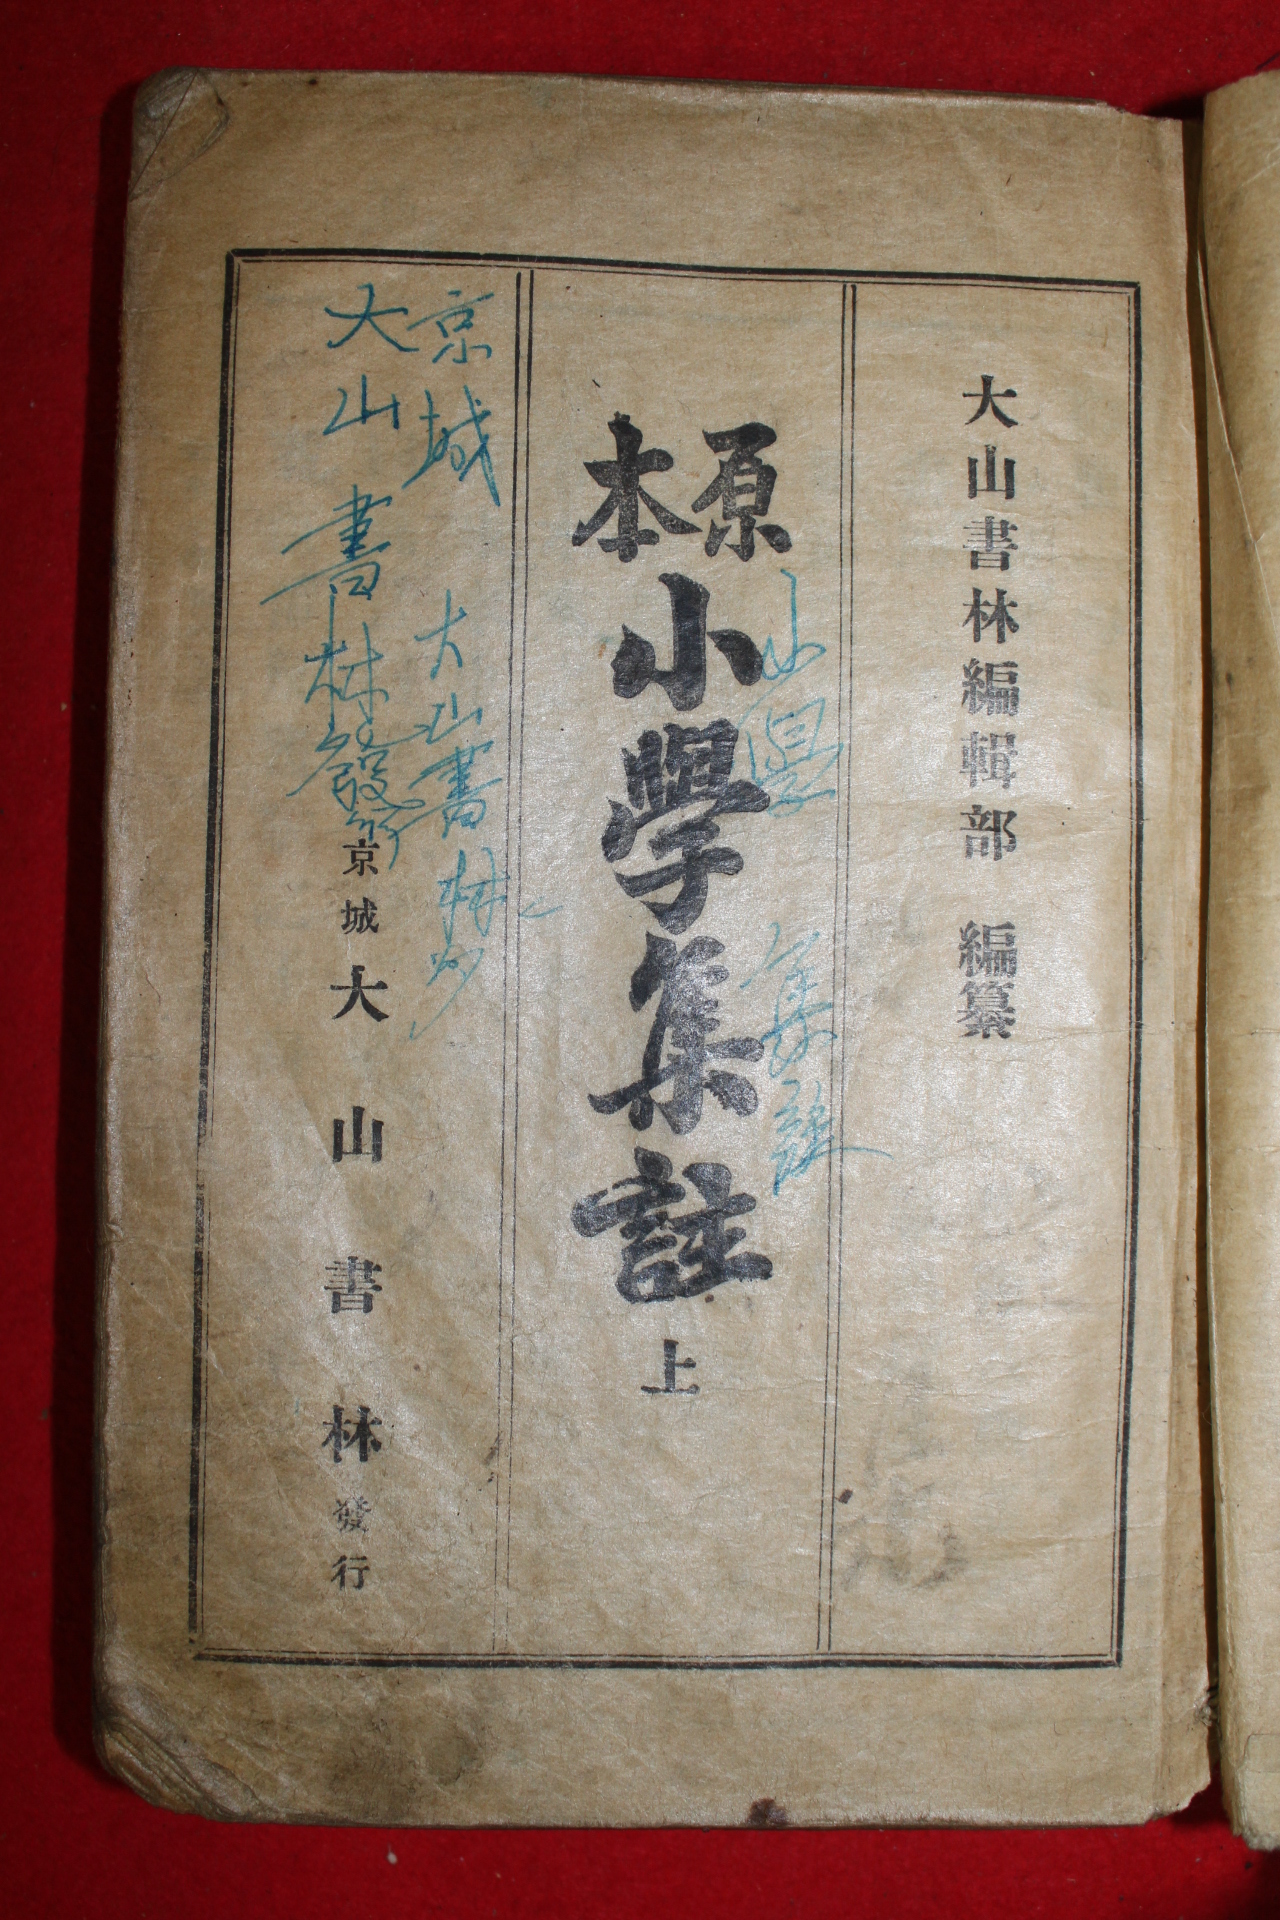 大山書林編輯部 編纂
原本
小學集註 上
小學 集註
京城 大山書林
大山書林發行
京城 大山書林 發行